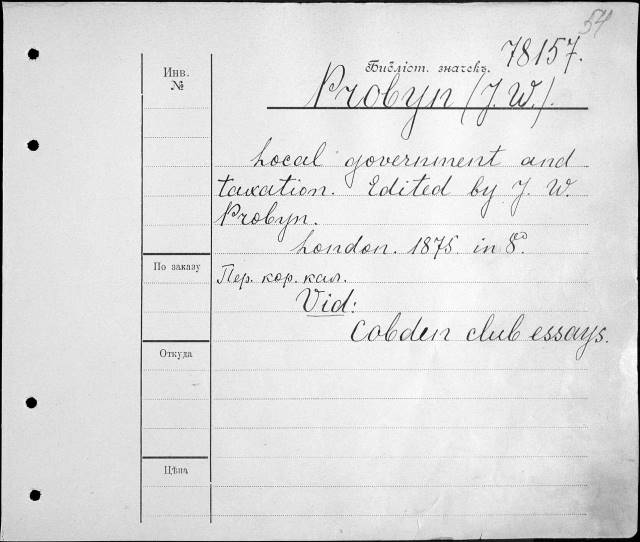 54
78157.
Инв.
№
Библіот. значекъ.
Probyn (J. W.).
Local government and
taxation. Edited by J. W.
Probyn.
London. 1875. in 8º.
По заказу
Пер. кор. кал.
Vid:
Cobden club essays.
Откуда
Цѣна